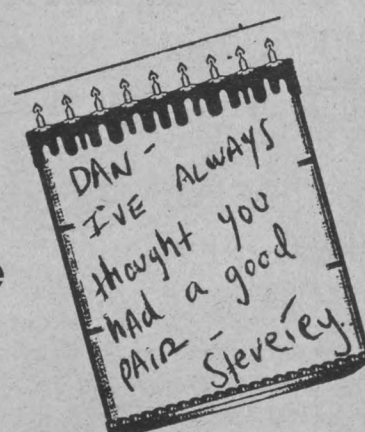 DAN -
I'VE ALWAYS
thought you
had a good
PAIR -
Steverey.